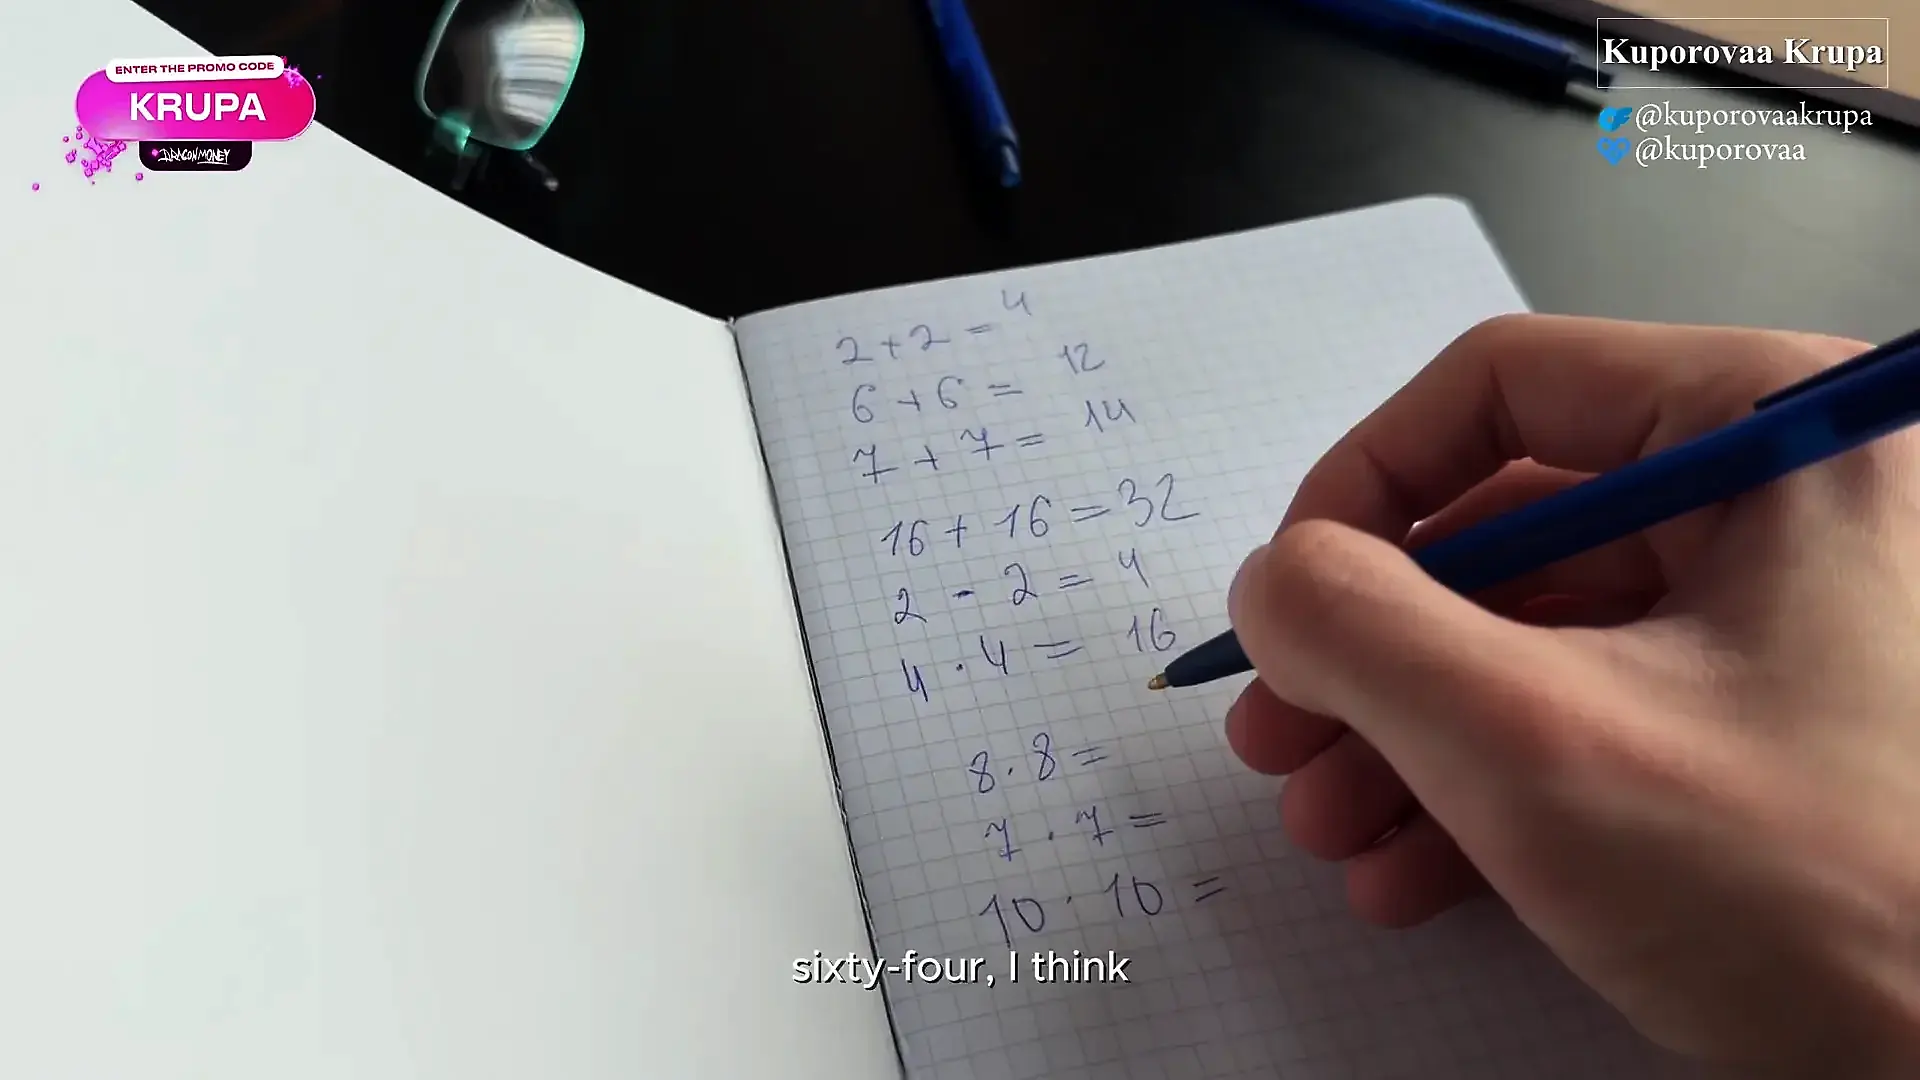 ENTER THE PROMO CODE
KRUPA
DRAGON MONEY
Kuporovaa Krupa
@kuporovaakrupa
@kuporovaa
2 + 2 = 4
6 + 6 = 12
7 + 7 = 14
16 + 16 = 32
2 - 2 = 4
4 · 4 = 16
8 · 8 =
7 · 7 =
10 · 10 =
sixty-four, I think